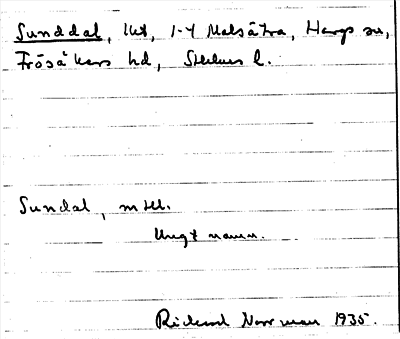 Sunddal, lht, 1-4 Malsätra, Hargs sn,
Frösåkers hd, Sthlms l.
Sundal, mtl.
Ungt namn.
Rickard Norrman 1935.